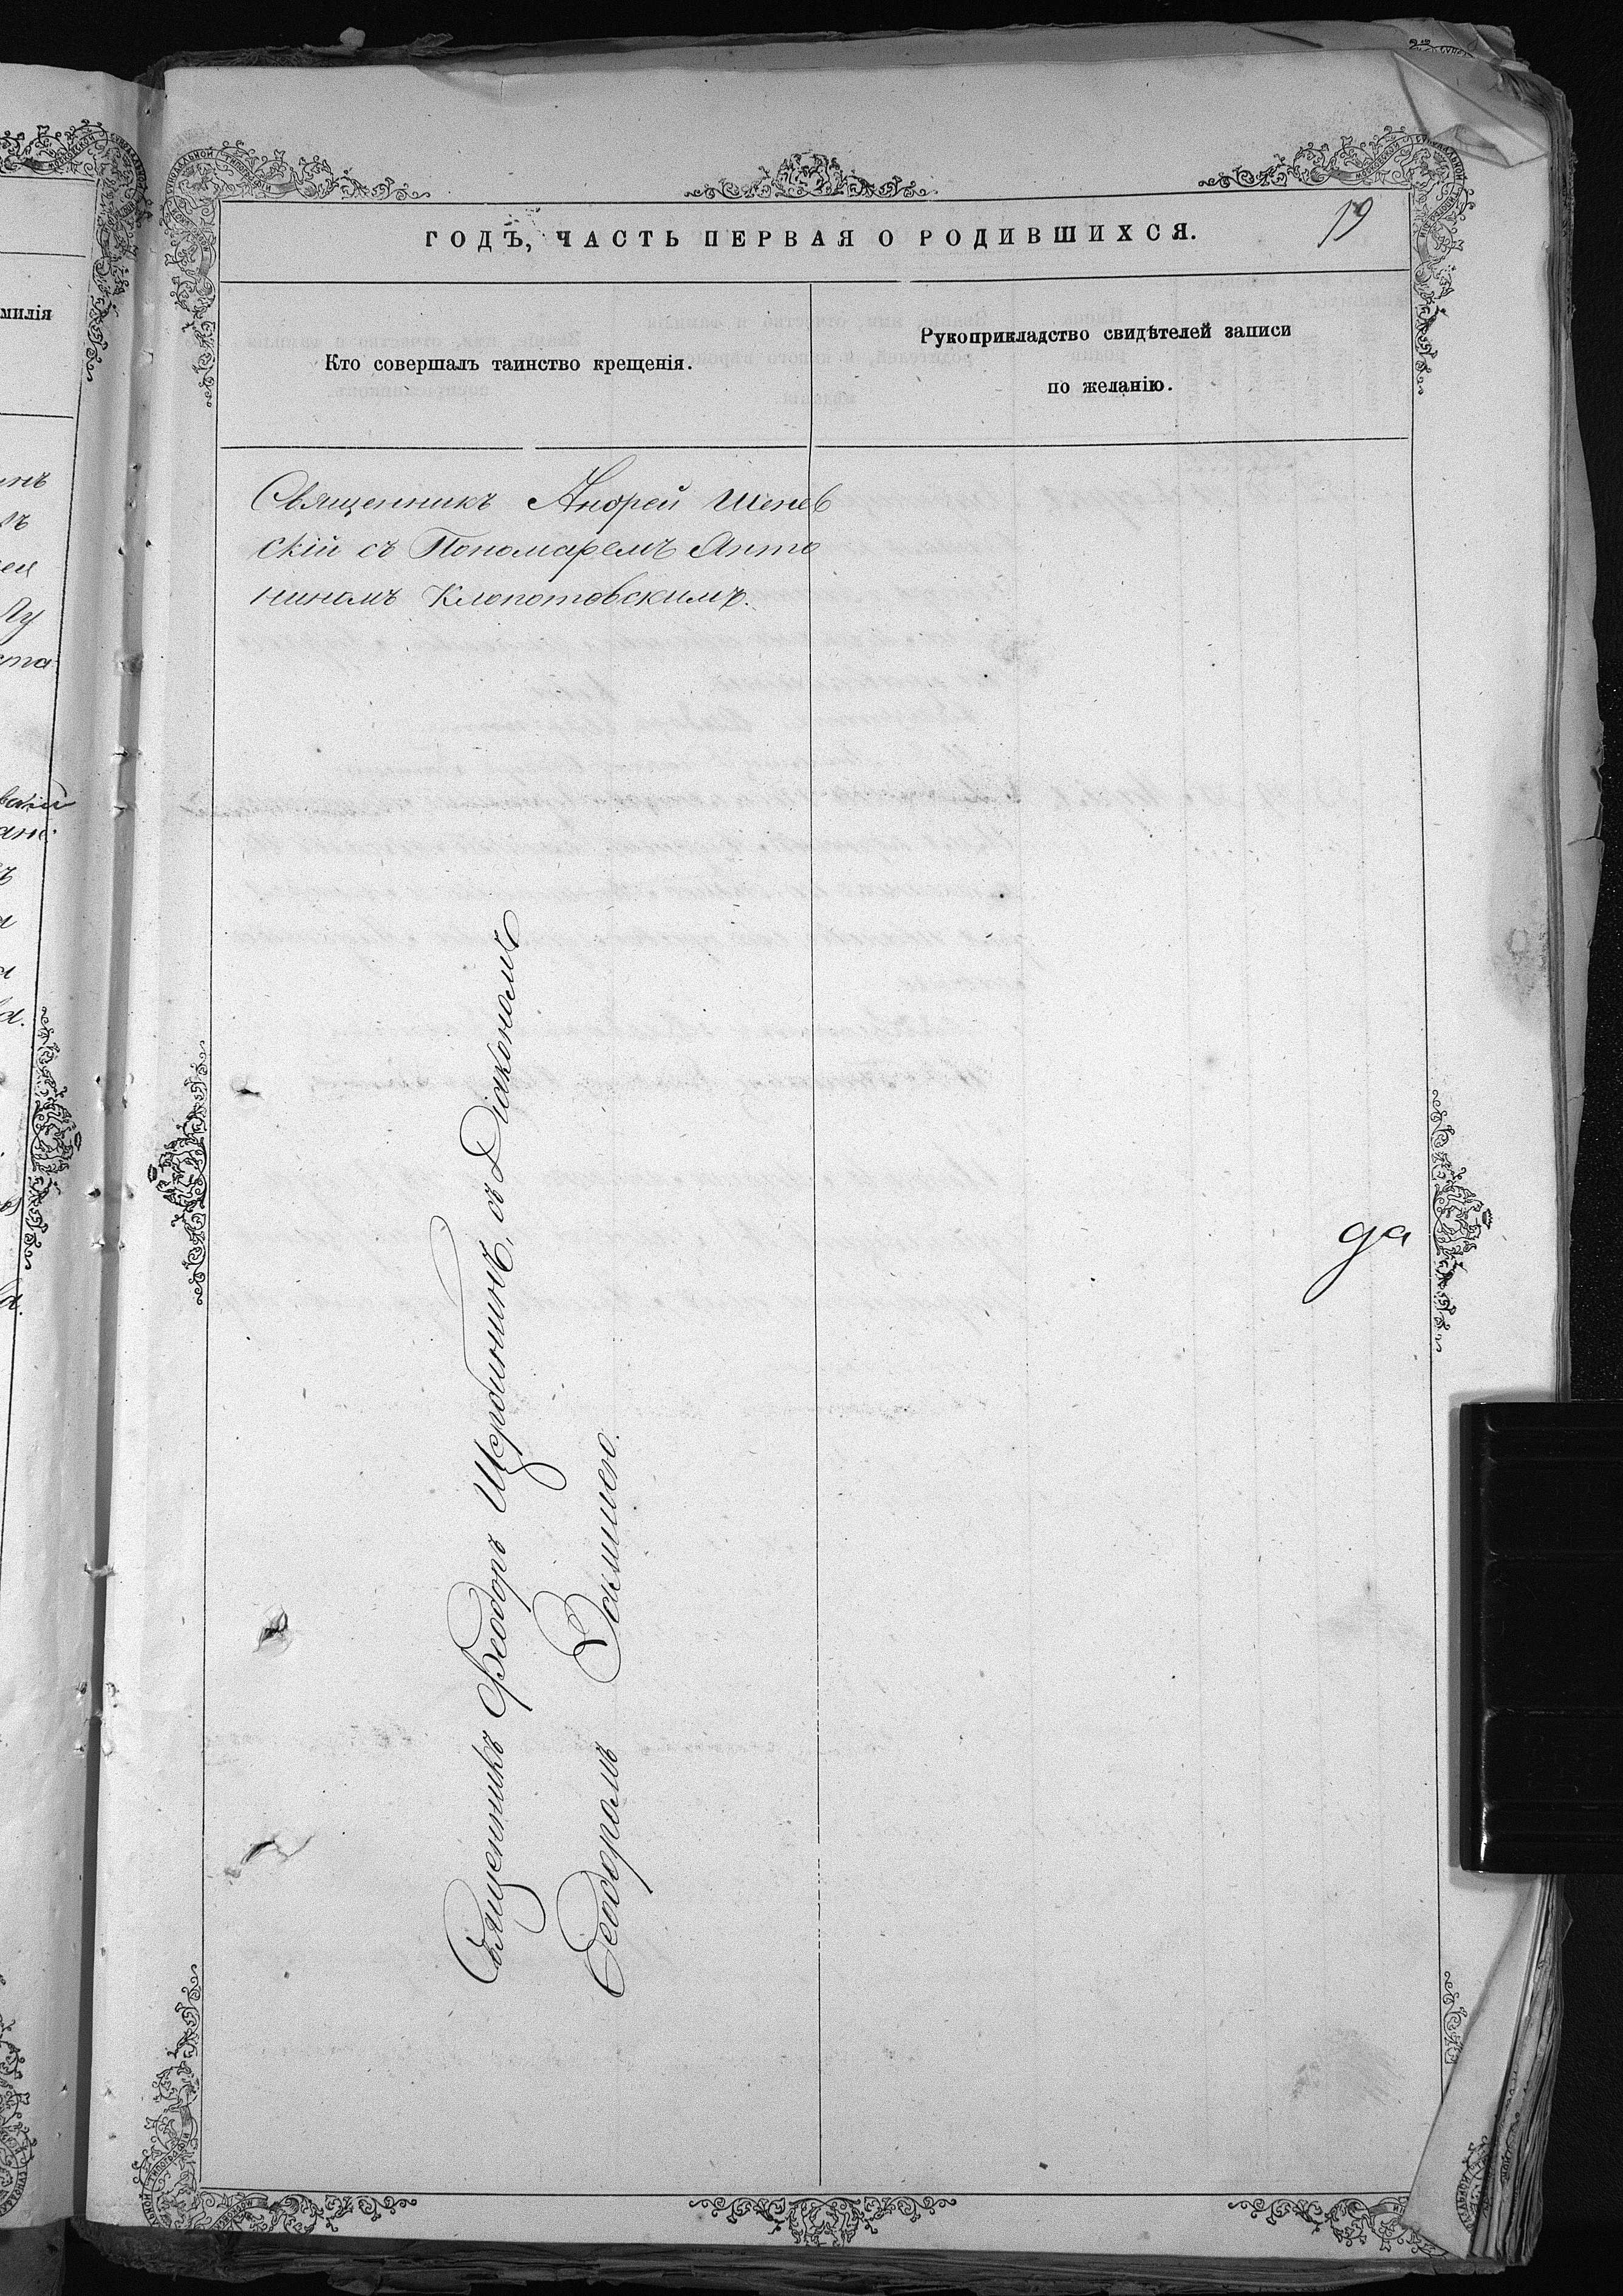 ГОДЪ, ЧАСТЬ ПЕРВАЯ О РОДИВШИХСЯ.
19
Кто совершалъ таинство крещенія.
Рукоприкладство свидѣтелей записи
по желанію.
Священникъ Андрей Шенев
скій съ Пономаремъ Анто
нинамъ Клопотовскимъ.
Священникъ Феодоръ Щербининъ, съ Діакономъ
Феодоромъ
милія